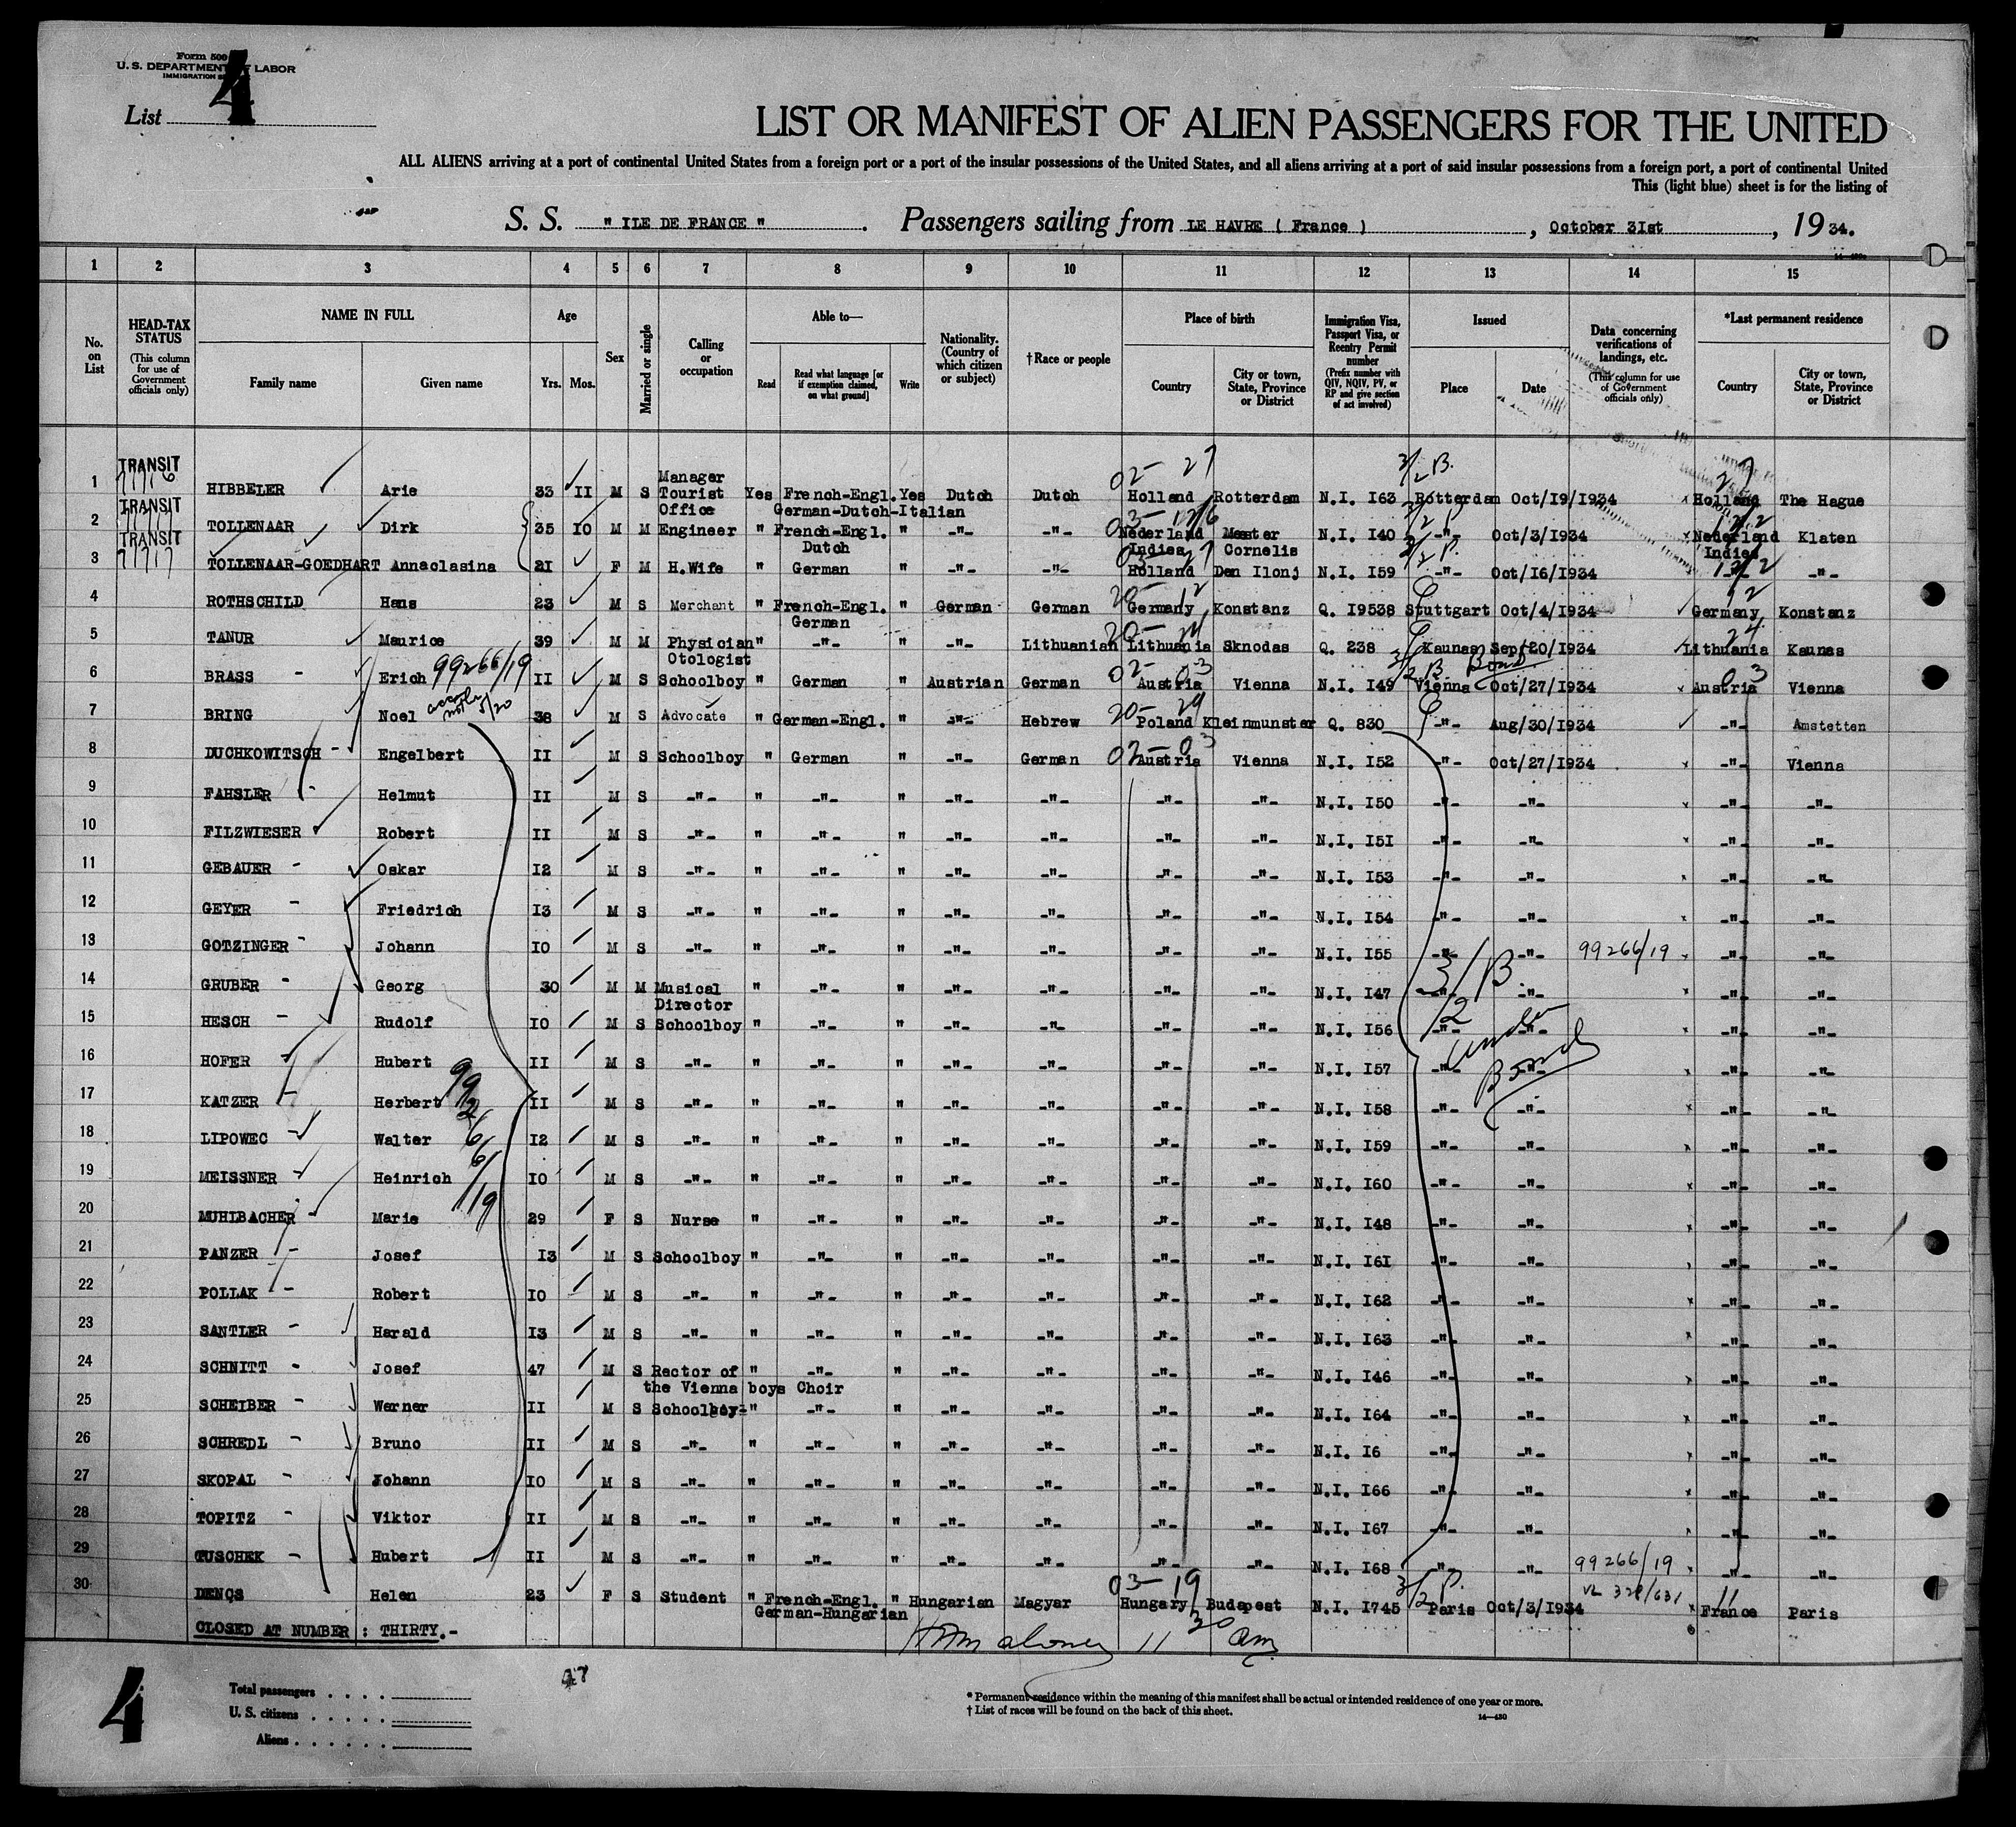 Form 500
U. S. DEPARTMENT OF LABOR
IMMIGRATION
List 4
LIST OR MANIFEST OF ALIEN PASSENGERS FOR THE UNITED
ALL ALIENS arriving at a port of continental United States from a foreign port or a port of the insular possessions of the United States, and all aliens arriving at a port of said insular possessions from a foreign port, a port of continental United
This (light blue) sheet is for the listing of
S. S. " ILE DE FRANCE " . Passengers sailing from LE HAVRE ( France ) , October 31st , 19 34.
1 2 3 4 5 6 7 8 9 10 11 12 13 14 15
No. on List
HEAD-TAX STATUS (This column for use of Government officials only)
NAME IN FULL
Family name Given name
Age
Yrs. Mos.
Sex
Married or single
Calling or occupation
Able to—
Read Read what language [or if exemption claimed, on what ground] Write
Nationality. (Country of which citizen or subject)
†Race or people
Place of birth
Country City or town, State, Province or District
Immigration Visa, Passport Visa, or Reentry Permit number (Prefix number with QIV, NQIV, PV, or RP and give section of act involved)
Issued
Place Date
Data concerning verifications of landings, etc. (This column for use of Government officials only)
*Last permanent residence
Country City or town, State, Province or District
1 TRANSIT HIBBELER Arie 33 II M S Manager Tourist Office Yes French-Engl. German-Dutch-Italian Yes Dutch Dutch Holland Rotterdam N.I. I63 Rotterdam Oct/19/1934 Holland The Hague
2 TRANSIT TOLLENAAR Dirk 35 IO M M Engineer " French-Engl. Dutch " -"- -"- Nederland Indies Meester Cornelis N.I. I40 -"- Oct/3/1934 Nederland Indies Klaten
3 TRANSIT TOLLENAAR-GOEDHART Annaclasina 21 F M H.Wife " German " -"- -"- Holland Den Ilonj N.I. I59 -"- Oct/I6/1934 -"- -"-
4 ROTHSCHILD Hans 23 M S Merchant " French-Engl. German " German German Germany Konstanz Q. I9538 Stuttgart Oct/4/1934 Germany Konstanz
5 TANUR Maurice 39 M M Physician Otologist " -"- " -"- Lithuanian Lithuania Sknodas Q. 238 Kaunas Sept/20/1934 Lithuania Kaunas
6 BRASS - Erich 99266/19 II M S Schoolboy " German " Austrian German Austria Vienna N.I. I49 Vienna Oct/27/1934 Austria Vienna
7 BRING Noel 38 M S Advocate " German-Engl. " -"- Hebrew Poland Kleinmunster Q. 830 -"- Aug/30/1934 -"- Amstetten
8 DUCHKOWITSCH - Engelbert II M S Schoolboy " German " -"- German Austria Vienna N.I. I52 -"- Oct/27/1934 -"- Vienna
9 FAHSLER - Helmut II M S -"- " -"- " -"- -"- -"- -"- N.I. I50 -"- -"- -"- -"-
10 FILZWIESER Robert II M S -"- " -"- " -"- -"- -"- -"- N.I. I5I -"- -"- -"- -"-
11 GEBAUER - Oskar I2 M S -"- " -"- " -"- -"- -"- -"- N.I. I53 -"- -"- -"- -"-
12 GEYER - Friedrich I3 M S -"- " -"- " -"- -"- -"- -"- N.I. I54 -"- -"- -"- -"-
13 GOTZINGER - Johann IO M S -"- " -"- " -"- -"- -"- -"- N.I. I55 -"- -"- 99266/19 -"- -"-
14 GRUBER - Georg 30 M M Musical Director " -"- " -"- -"- -"- -"- N.I. I47 -"- -"- -"- -"-
15 HESCH - Rudolf IO M S Schoolboy " -"- " -"- -"- -"- -"- N.I. I56 -"- -"- -"- -"-
16 HOFER - Hubert II M S -"- " -"- " -"- -"- -"- -"- N.I. I57 -"- -"- -"- -"-
17 KATZER - Herbert II M S -"- " -"- " -"- -"- -"- -"- N.I. I58 -"- -"- -"- -"-
18 LIPOWEC - Walter I2 M S -"- " -"- " -"- -"- -"- -"- N.I. I59 -"- -"- -"- -"-
19 MEISSNER - Heinrich IO M S -"- " -"- " -"- -"- -"- -"- N.I. I60 -"- -"- -"- -"-
20 MUHLBACHER - Marie 29 F S Nurse " -"- " -"- -"- -"- -"- N.I. I48 -"- -"- -"- -"-
21 PANZER - Josef I3 M S Schoolboy " -"- " -"- -"- -"- -"- N.I. I6I -"- -"- -"- -"-
22 POLLAK - Robert IO M S -"- " -"- " -"- -"- -"- -"- N.I. I62 -"- -"- -"- -"-
23 SANTLER - Harald I3 M S -"- " -"- " -"- -"- -"- -"- N.I. I63 -"- -"- -"- -"-
24 SCHNITT - Josef 47 M S Rector of the Vienna boys Choir " -"- " -"- -"- -"- -"- N.I. I46 -"- -"- -"- -"-
25 SCHEIBER - Werner II M S Schoolboy- " -"- " -"- -"- -"- -"- N.I. I64 -"- -"- -"- -"-
26 SCHREDL - Bruno II M S -"- " -"- " -"- -"- -"- -"- N.I. I6 -"- -"- -"- -"-
27 SKOPAL - Johann IO M S -"- " -"- " -"- -"- -"- -"- N.I. I66 -"- -"- -"- -"-
28 TOPITZ - Viktor II M S -"- " -"- " -"- -"- -"- -"- N.I. I67 -"- -"- -"- -"-
29 TUSCHEK - Hubert II M S -"- " -"- " -"- -"- -"- -"- N.I. I68 -"- -"- 99266/19 -"- -"-
30 DENCS Helen 23 F S Student " French-Engl. German-Hungarian " Hungarian Magyar Hungary Budapest N.I. I745 Paris Oct/3/1934 France Paris
99266/19
3/2 B. under Bond
CLOSED AT NUMBER : THIRTY.-
11 30 am
4
47
Total passengers . . . .
U. S. citizens . . . . .
Aliens . . . . . .
* Permanent residence within the meaning of this manifest shall be actual or intended residence of one year or more.
† List of races will be found on the back of this sheet.
14—430